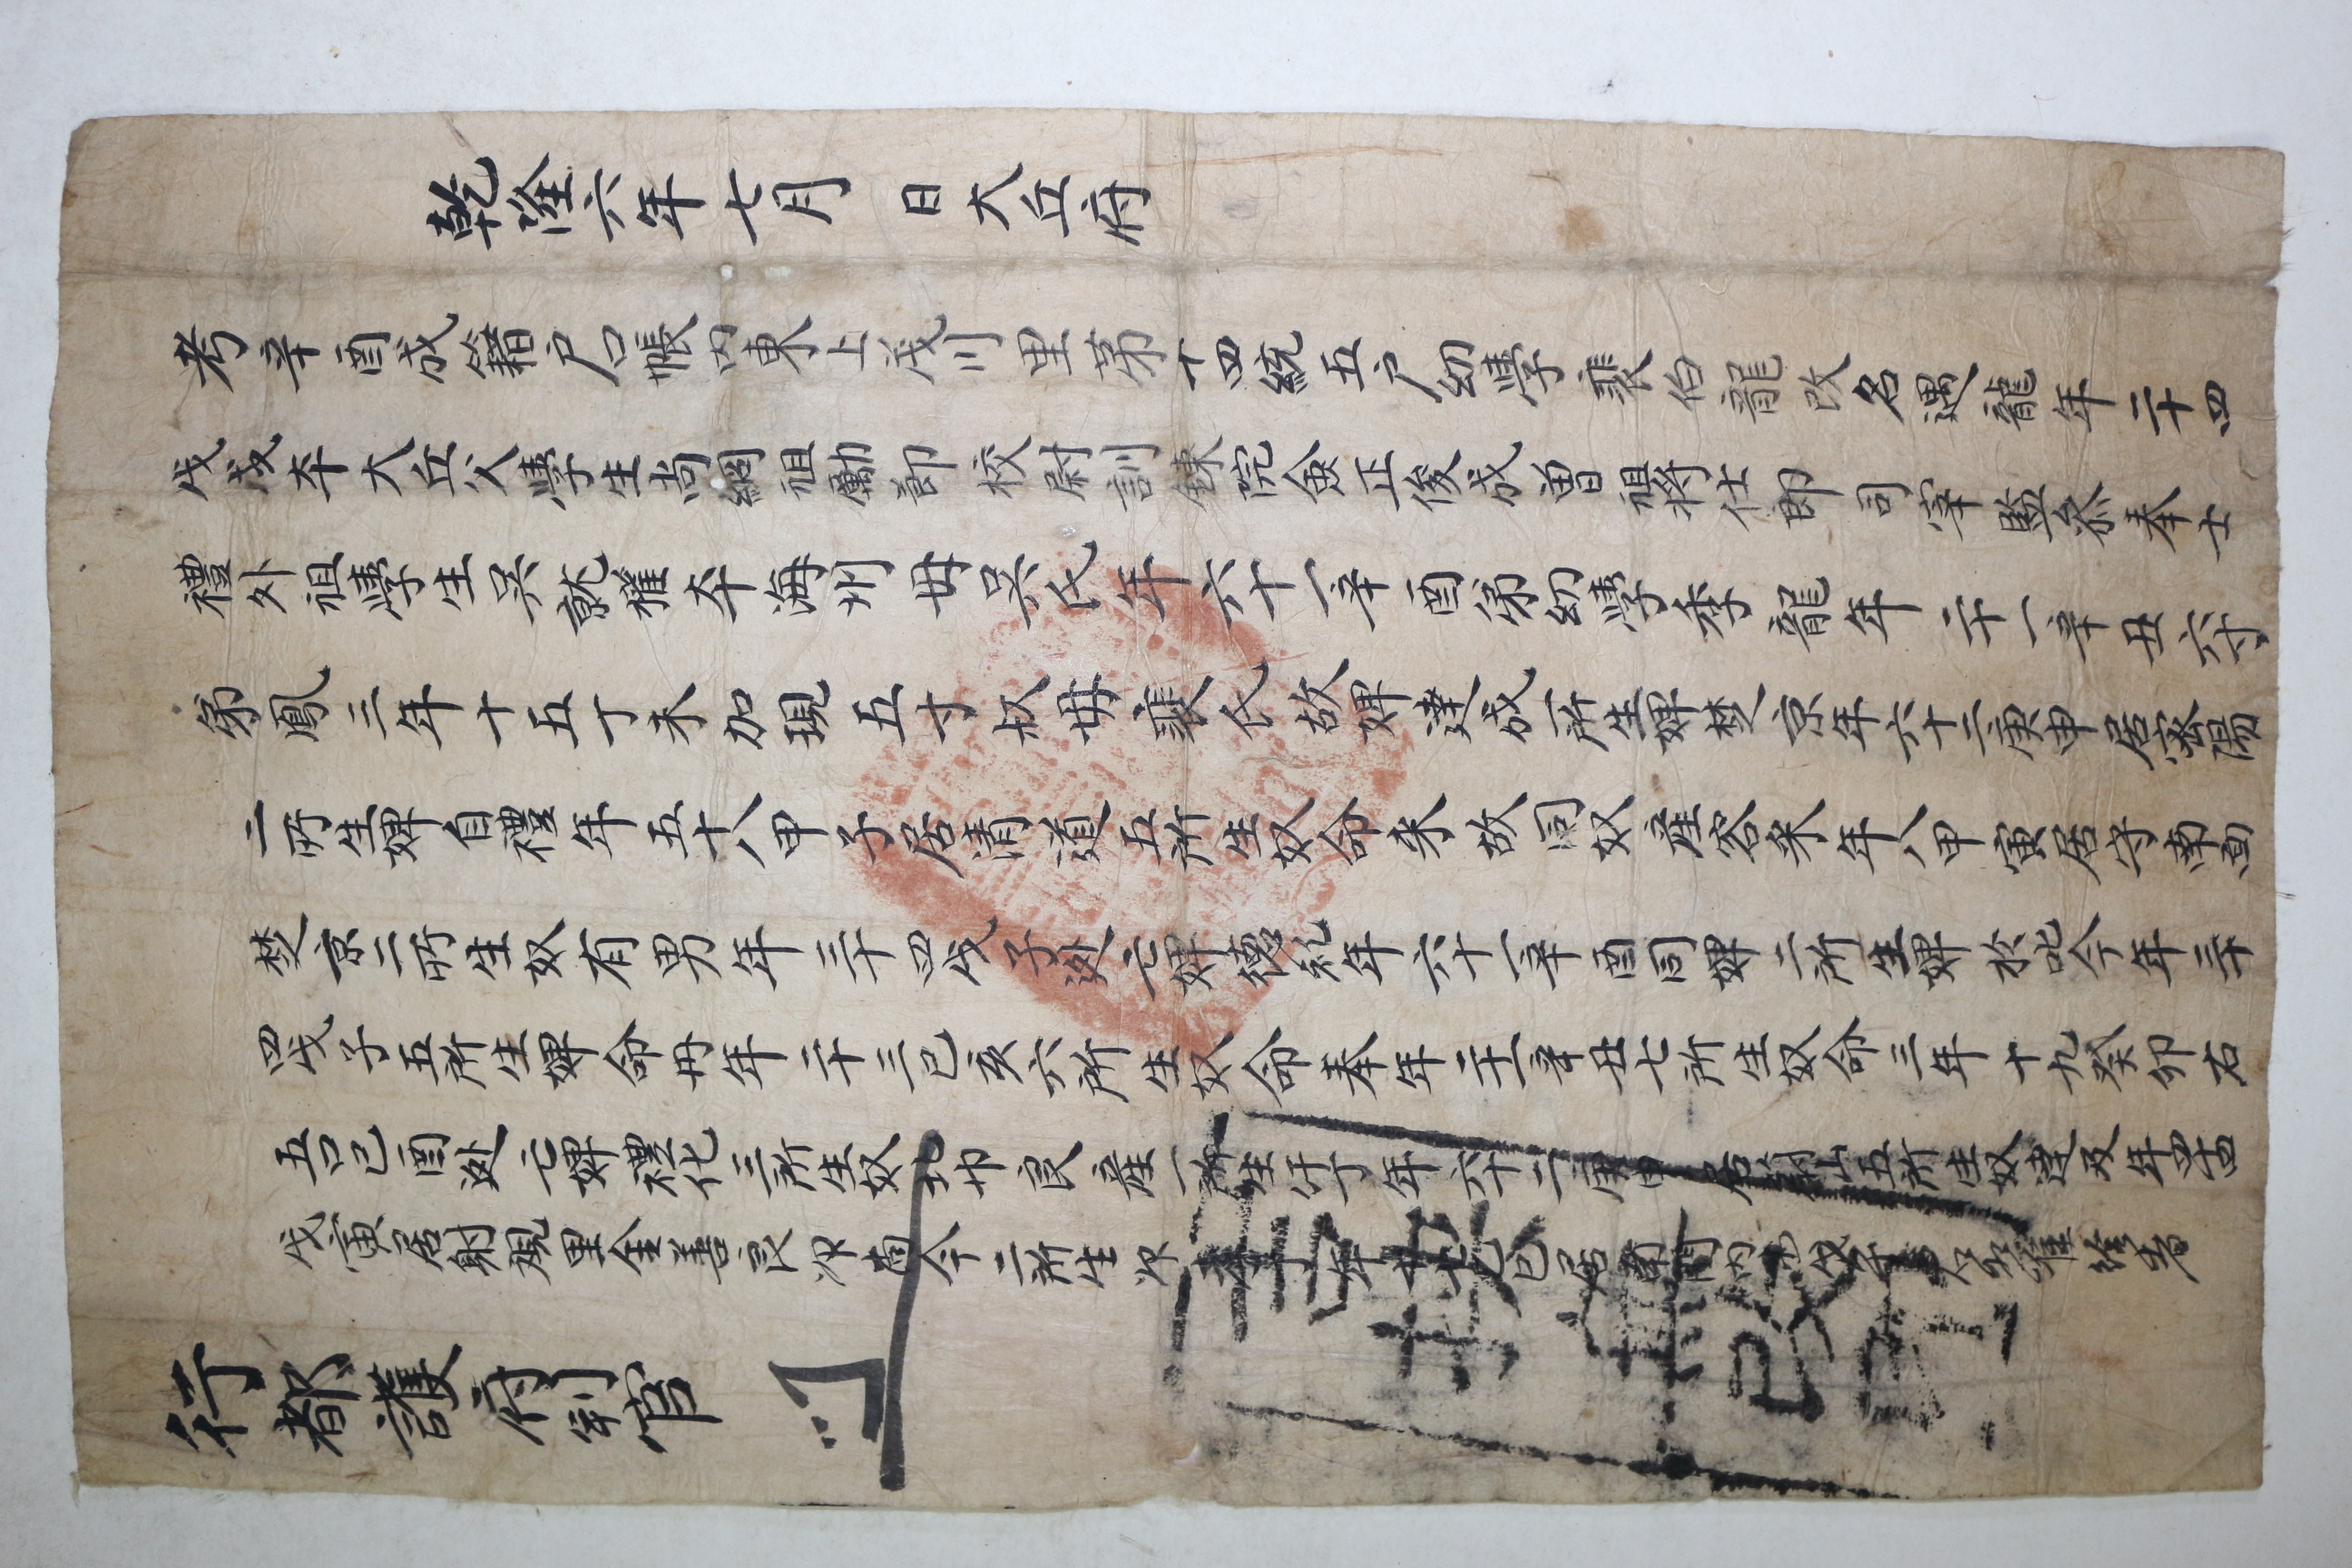 乾隆六年七月 日大丘府
考辛酉成籍戶口帳內東上茂川里第十四統五戶幼學裵伯龍改名遇龍年二十四
戊戌本大丘父學生尚綱祖勵節校尉訓鍊院僉正後成曾祖將仕郎司宰監參奉士
禮外祖學生吳就雍本海州母吳氏年六十一辛酉弟幼學季龍年二十一辛丑六寸
弟鳳三年十五丁未加現五寸叔母裵氏故婢達成一所生婢梵京年六十二庚申居密陽
二所生婢自禮年五十八甲子居清道五所生奴命來故同奴產客采年八甲寅居守南面
梵京二所生奴有男年三十四戊子逃亡婢德紀年六十一辛酉同婢二所生婢於叱今年三十
四戊子五所生婢命母年二十三己亥六所生奴命奉年二十一辛丑七所生奴命三年十九癸卯右
五口己酉逃亡婢禮化三所生奴 良產一所生 年六十二庚申居 山五所生奴達 年四十四
戊寅居射 里金善 二所生 年 己巳居
行都護府判官